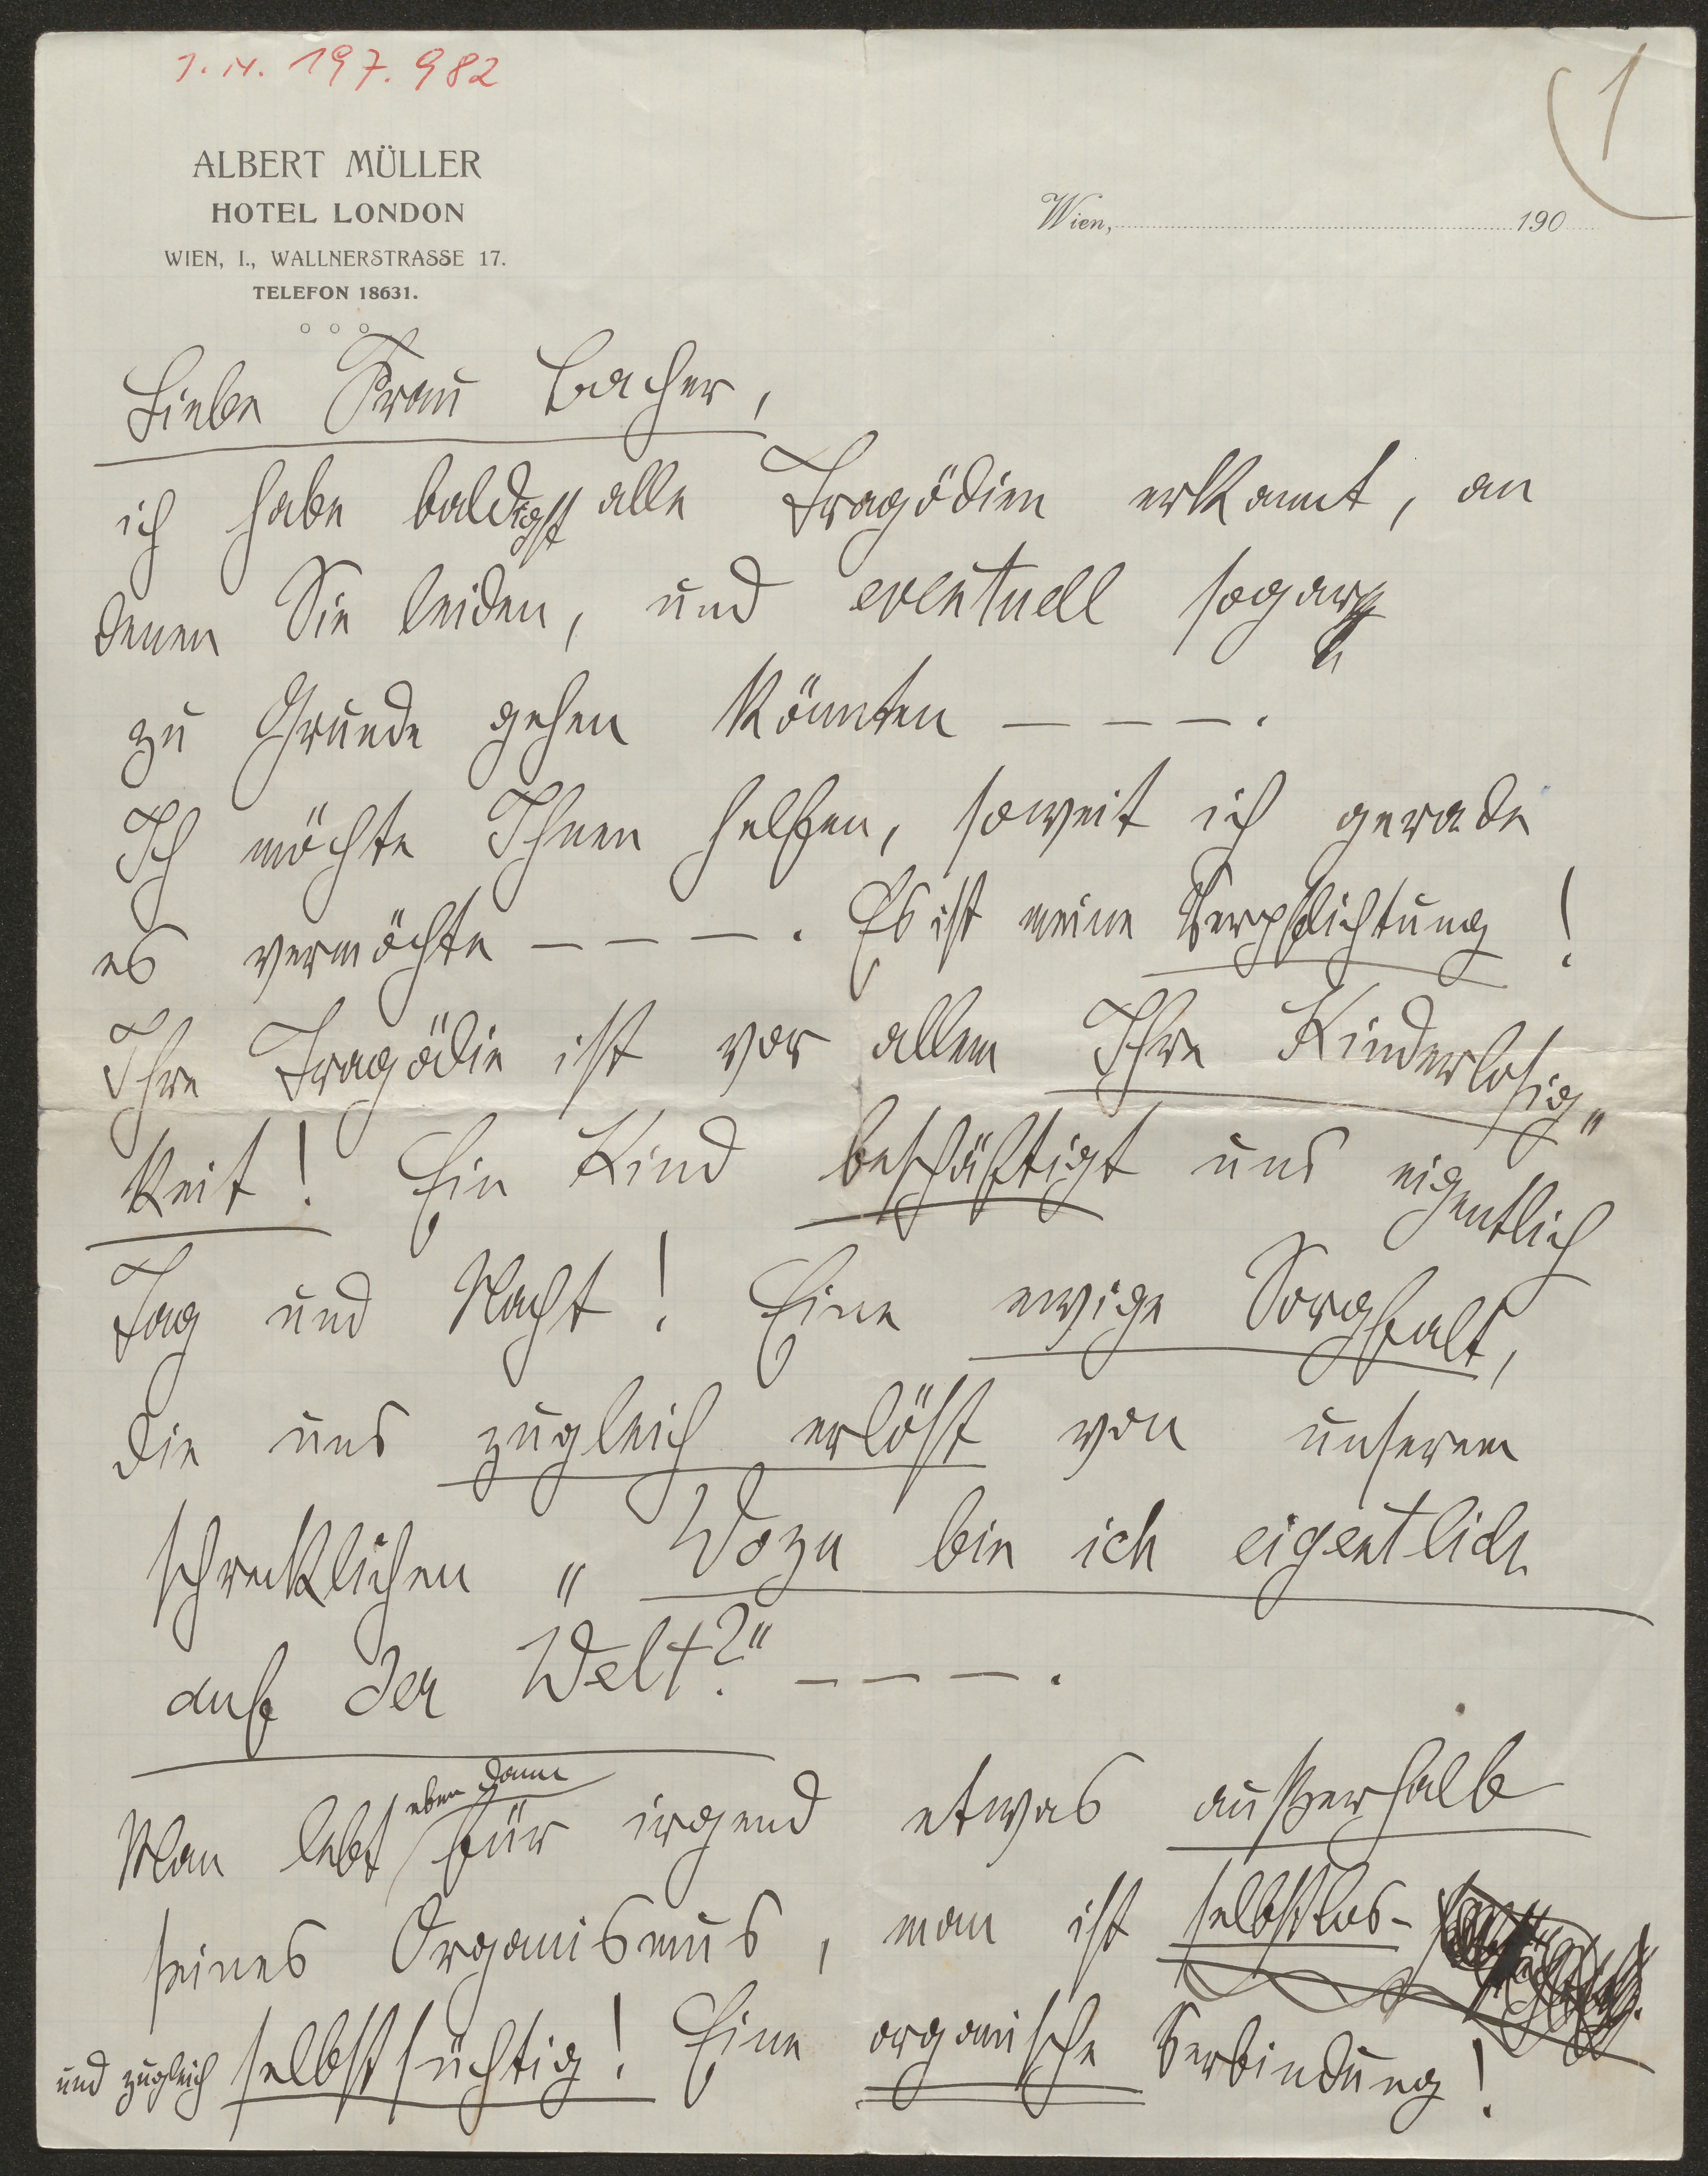 I.N. 197.982
1
ALBERT MÜLLER
HOTEL LONDON
WIEN, I., WALLNERSTRASSE 17.
TELEFON 18631.
Wien, 190
Liebe Frau Bacher,
ich habe baldigst alle Tragödien erkannt, an
denen Sie leiden, und eventuell sogar
zu Grunde gehen könnten — — — .
Ich möchte Ihnen helfen, soweit ich gerade
es vermöchte — — — . Es ist meine Verpflichtung !
Ihre Tragödie ist vor allem Ihre Kinderlosig„
keit ! Ein Kind beschäftigt uns eigentlich
Tag und Nacht ! Eine ewige Sorgfalt,
die uns zugleich erlöst von unserem
schrecklichen „ Wozu bin ich eigentlich
auf der Welt?" — — — .
eben dann
Man lebt für irgend etwas außerhalb
seines Organismus, man ist selbstlos-
und zugleich selbstsüchtig ! Eine organische Verbindung !